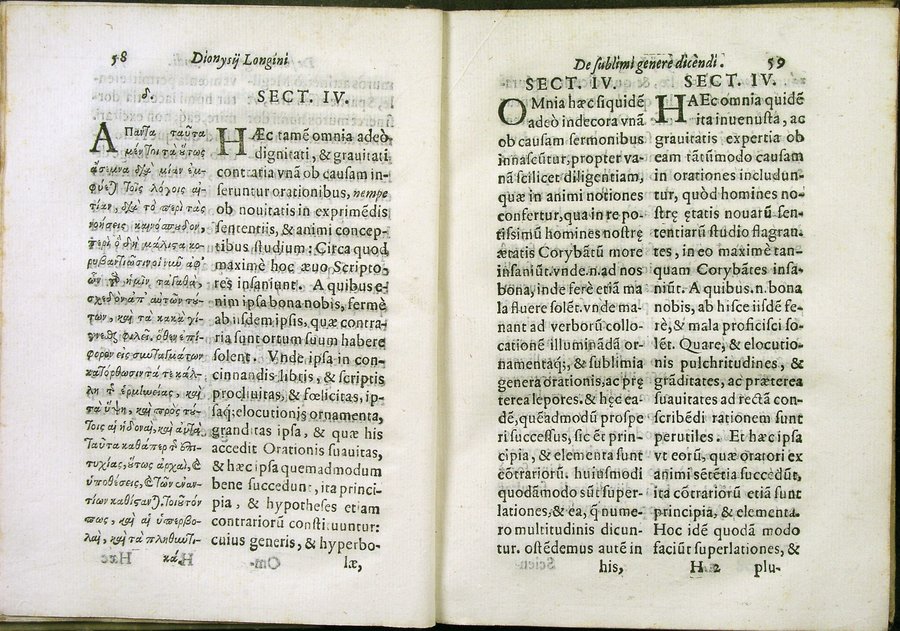 58
Dionysij Longini
δ.
ΑΠαντα ταῦτα
μέντοι τὰ οὕτως
ἄσεμνα διὰ μίαν ἐμ-
φύε) τοῖς λόγοις αἰ-
τίαν, διὰ τὸ περὶ τὰς
νοήσεις καινόσπουδον,
περὶ ὃ δὴ μάλιστα κο-
ρυβαντιῶσιν οἱ νῦν ἀφ᾽
ὧν ἡμῖν τἀγαθὰ,
σχεδὸν ἀπ᾽ αὐτῶν τού-
των, καὶ τὰ κακὰ γί-
νεσθαι φιλεῖ. ὅθεν ἐπί-
φορον εἰς συνταγμάτων
κατόρθωσιν τά τε κάλ-
λη τ ἑρμηνείας, καὶ
τὰ ὕψη, καὶ πρὸς τού-
τοις αἱ ἡδοναὶ, καὶ αὐτὰ
ταῦτα καθάπερ τ ἐπι-
τυχίας, οὕτως ἀρχαὶ, &
ὑποθέσεις, & τῶν ἐναν-
τίων καθίσταν). τοιοῦτόν
πως, καὶ αἱ ὑπερβο-
λαὶ, καὶ τὰ πληθυντι-
κά.
SECT. IV.
HÆc tamē omnia adeò
dignitati, & grauitati
contraria vnā ob causam in-
seruntur orationibus, nempe
ob nouitatis in exprimēdis
sententiis, & animi concep-
tibus studium: Circa quod
maximè hoc æuo Scripto-
res insaniunt. A quibus e-
nim ipsa bona nobis, fermè
ab iisdem ipsis, quæ contra-
ria sunt ortum suum habere
solent. Vnde ipsa in con-
cinnandis libris, & scriptis
procliuitas, & fœlicitas, ip-
saq; elocutionis ornamenta,
granditas ipsa, & quæ his
accedit Orationis suauitas,
& hæc ipsa quemadmodum
bene succedunt, ita princi-
pia, & hypotheses etiam
contrariorū constituuntur:
cuius generis, & hyperbo-
læ,
De sublimi genere dicendi.
59
SECT. IV.
OMnia hæc siquidē
adeò indecora vnā
ob causam sermonibus
innascūtur, propter va-
nā scilicet diligentiam,
quæ in animi notiones
confertur, qua in re po-
tissimū homines nostrę
ætatis Corybātū more
insaniūt. vnde. n. ad nos
bona, inde ferè etiā ma
la fluere solēt. vnde ma-
nant ad verborū collo-
cationē illuminādā or-
namentaq;, & sublimia
genera orationis, ac prę
terea lepores. & hęc ea-
dē, quēadmodū prospe
ri successus, sic ēt prin-
cipia, & elementa sunt
cōtrariorū. huiusmodi
quodāmodo sūt super-
lationes, & ea, q̃ nume-
ro multitudinis dicun-
tur. ostēdemus autē in
his,
SECT. IV.
HAEc omnia quidē
ita inuenusta, ac
grauitatis expertia ob
eam tātūmodo causam
in orationes includun-
tur, quòd homines no-
strę ętatis nouarū sen-
tentiarū studio flagran-
tes, in eo maximè tan-
quam Corybātes insa-
niūt. A quibus. n. bona
nobis, ab hisce iisdē fe-
rè, & mala proficisci so-
lēt. Quare, & elocutio-
nis pulchritudines, &
grāditates, ac præterea
suauitates ad rectā con-
scribēdi rationem sunt
perutiles. Et hæc ipsa
vt eorū, quæ oratori ex
animi sētētia succedūt,
ita cōtrariorū etiā sunt
principia, & elementa.
Hoc idē quodā modo
faciūt superlationes, &
H 2
plu-